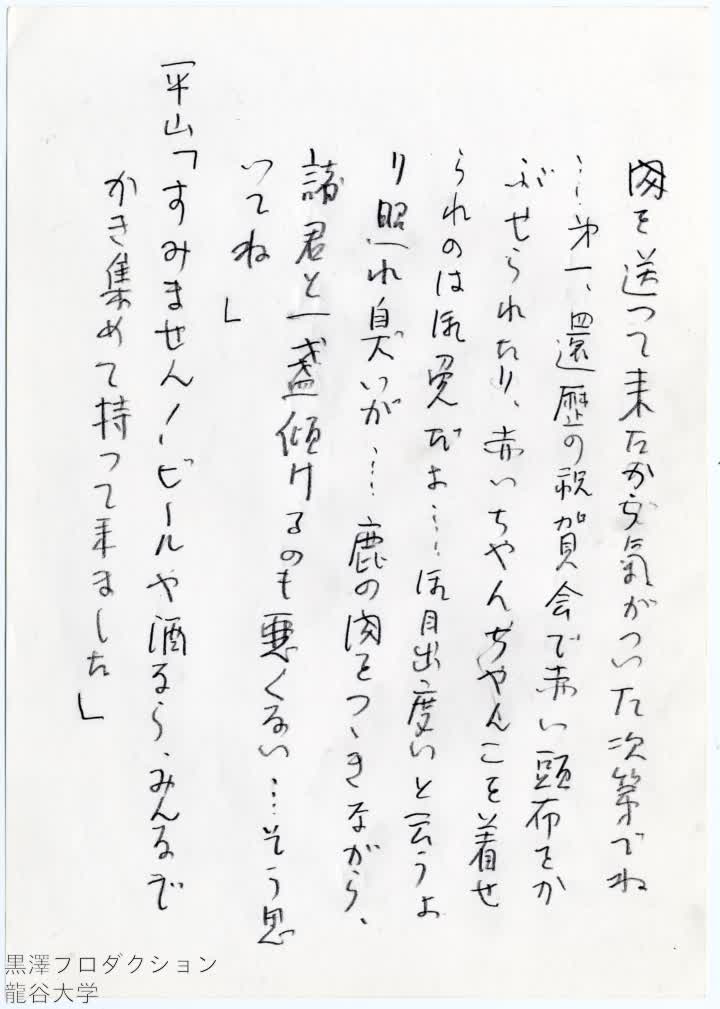 肉を送って来たから気がついた次第でね
…第一、還歴の祝賀会で赤い頭布をか
ぶせられたり、赤いちゃんちゃんこを着せ
られのは御免だよ…御目出度いと云うよ
り照れ臭いが…鹿の肉をつゝきながら、
諸君と一盞傾けるのも悪くない…そう思
ってね」
平山「すみません！ビールや酒なら、みんなで
かき集めて持って来ました」
黒澤プロダクション
龍谷大学